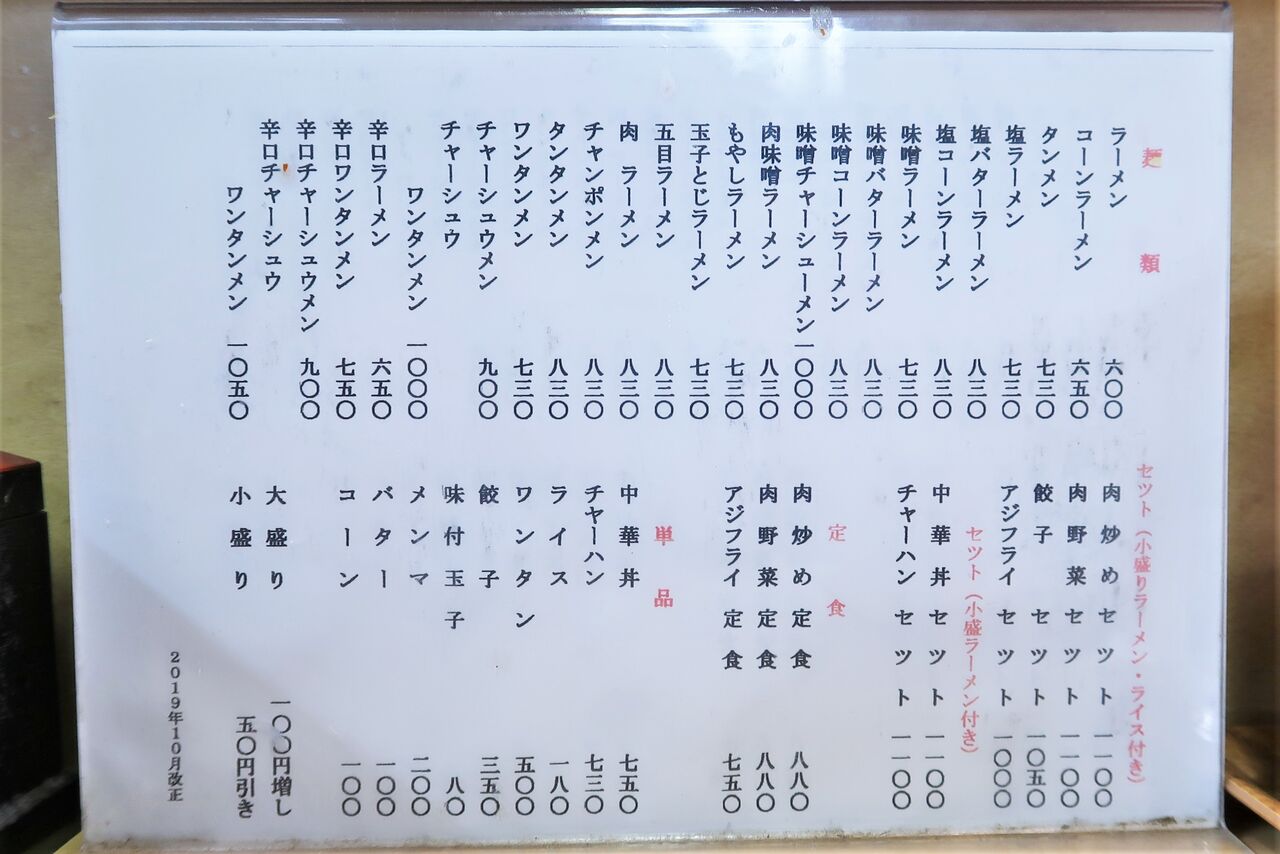 麺類
ラーメン 六〇〇
コーンラーメン 六五〇
タンメン 七三〇
塩ラーメン 七三〇
塩バターラーメン 八三〇
塩コーンラーメン 八三〇
味噌ラーメン 七三〇
味噌バターラーメン 八三〇
味噌コーンラーメン 八三〇
味噌チャーシューメン 一〇〇〇
肉味噌ラーメン 八三〇
もやしラーメン 七三〇
玉子とじラーメン 七三〇
五目ラーメン 八三〇
肉 ラーメン 八三〇
チャンポンメン 八三〇
タンタンメン 八三〇
ワンタンメン 七三〇
チャーシュウメン 九〇〇
チャーシュウ
ワンタンメン 一〇〇〇
辛口ラーメン 六五〇
辛口ワンタンメン 七五〇
辛口チャーシュウメン 九〇〇
辛口チャーシュウ
ワンタンメン 一〇五〇
セツト(小盛りラーメン・ライス付き)
肉炒めセツト 一一〇〇
肉野菜セツト 一一〇〇
餃子セツト 一〇五〇
アジフライセツト 一〇〇〇
セツト(小盛ラーメン付き)
中華丼セツト 一一〇〇
チャーハンセツト 一一〇〇
定食
肉炒め定食 八八〇
肉野菜定食 八八〇
アジフライ定食 七五〇
単品
中華丼 七五〇
チャーハン 七三〇
ライス 一八〇
ワンタン 五〇〇
餃子 三五〇
味付玉子 八〇
メンマ 二〇〇
バター 一〇〇
コーン 一〇〇
大盛り 一〇〇円増し
小盛り 五〇円引き
2019年10月改正